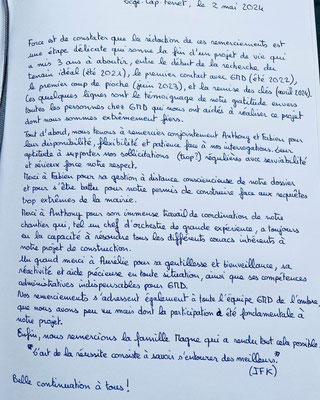 Lège-Cap-Ferret, le 2 mai 2024
Force est de constater que la rédaction de ces remerciements est
une étape délicate qui sonne la fin d'un projet de vie qui
a mis 3 ans à aboutir, entre le début de la recherche du
terrain idéal (été 2021), le premier contact avec GMD (été 2022),
le premier coup de pioche (juin 2023), et la remise des clés (avril 2024).
Ces quelques lignes sont le témoignage de notre gratitude envers
toutes les personnes chez GMD qui nous ont aidés à réaliser ce projet
dont nous sommes extrêmement fiers.
Tout d'abord, nous tenons à remercier conjointement Anthony et Fabien pour
leur disponibilité, flexibilité et patience face à nos interrogations. Leur
aptitude à supporter nos sollicitations (trop?) régulières avec serviabilité
et sérieux force notre respect.
Merci à Fabien pour sa gestion à distance consciencieuse de notre dossier
et pour s'être battu pour notre permis de construire face aux requêtes
trop extrêmes de la mairie.
Merci à Anthony pour son immense travail de coordination de notre
chantier qui, tel un chef d'orchestre de grande expérience, a toujours
eu la capacité à résoudre tous les différents couacs inhérents à
notre projet de construction.
Un grand merci à Aurélie pour sa gentillesse et bienveillance, sa
réactivité et aide précieuse en toute situation, ainsi que ses compétences
administratives indispensables pour GMD.
Nos remerciements s'adressent également à toute l'équipe GMD de l'ombre,
que nous avons peu vu mais dont la participation a été fondamentale à
notre projet.
Enfin, nous remercions la famille Magne qui a rendu tout cela possible.
"L'art de la réussite consiste à savoir s'entourer des meilleurs."
(JFK)
Belle continuation à tous!